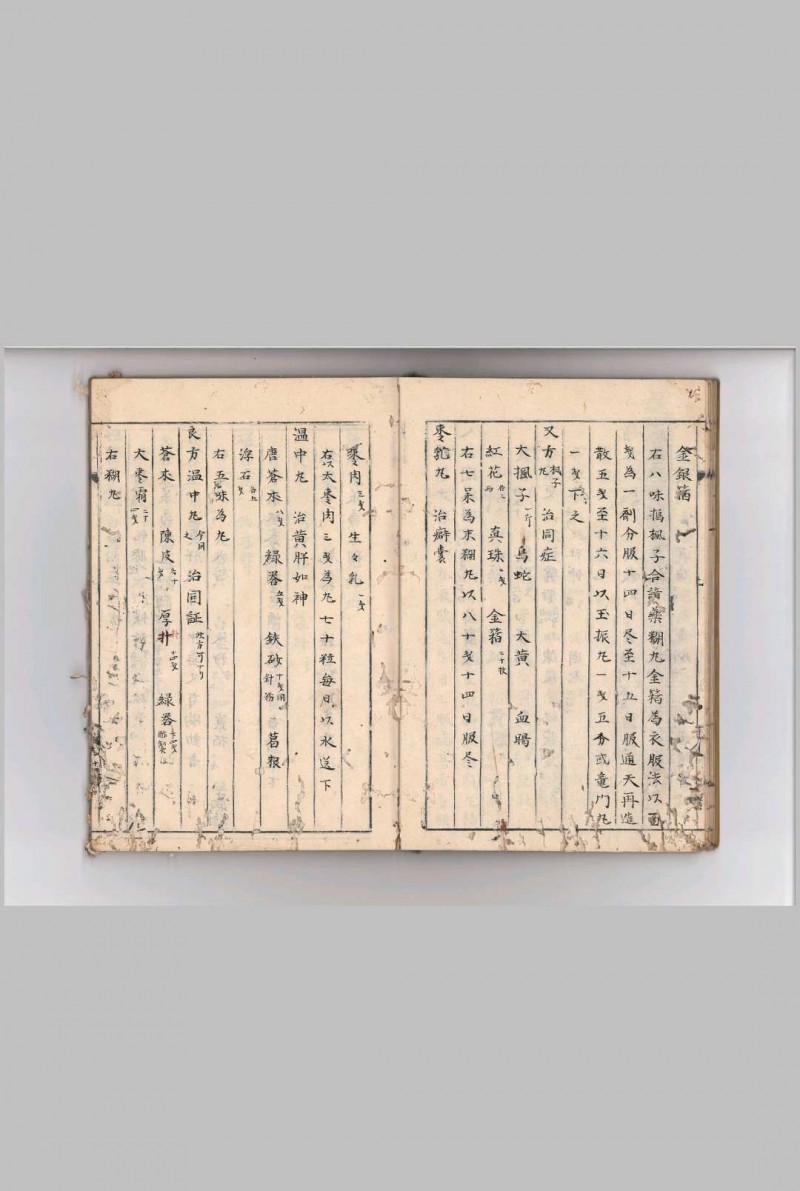 金銀箔
右八味搗楓子合諸藥糊丸金箔為衣服法以面
戔為一劑分服十四日尽至十五日服通天再造
散五戔至十六日以玉振丸一戔五分或竜門丸
一戔下之
又方 楓子丸 治同症
大楓子 一斤 烏蛇 大黄 血竭
紅花 真珠 金箔 二十枚
右七味為末糊丸以八十戔十四日服尽
棗乳丸 治癖囊
棗肉 三戔 生々乳 一戔
右以大棗肉三戔為丸七十粒毎日以水送下
温中丸 治黄肝如神
唐蒼朮 八戔 緑礬 五戔 鉄砂 葛根
浮石
右五味為丸
良方温中丸 治同証
蒼朮 陳皮 厚朴 緑礬
大棗霜
右糊丸